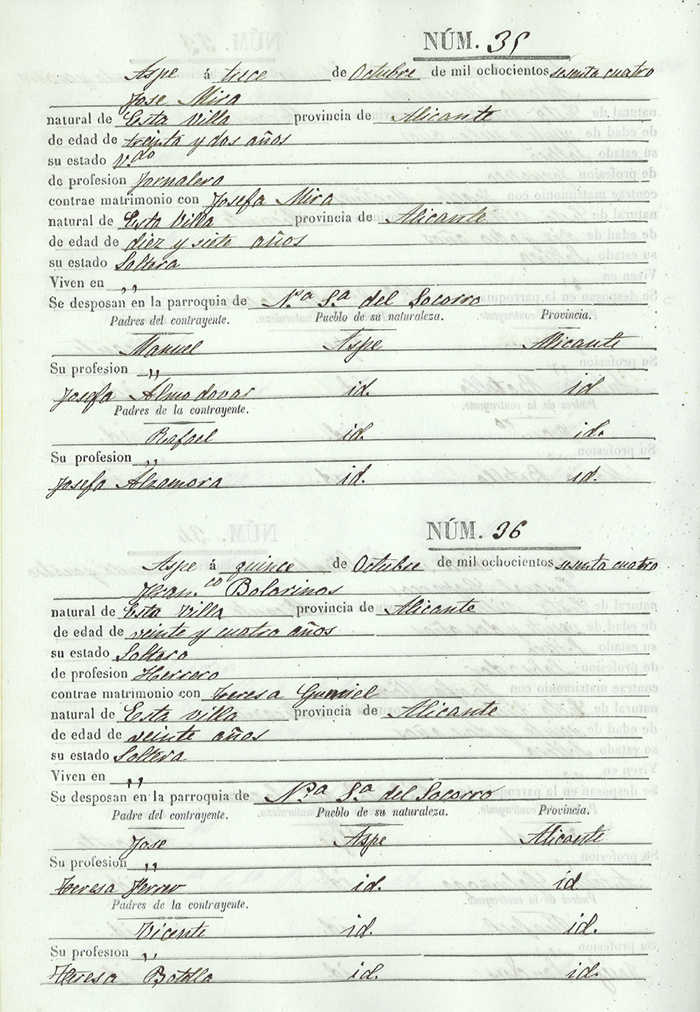 NÚM. 35
Aspe á trece de Octubre de mil ochocientos sesenta cuatro
Jose Mira
natural de Esta Villa provincia de Alicante
de edad de treinta y dos años
su estado Vdo
de profesion Jornalero
contrae matrimonio con Josefa Mira
natural de Esta Villa provincia de Alicante
de edad de diez y siete años
su estado Soltera
Viven en „
Se desposan en la parroquia de Nra Sra del Socorro
Padres del contrayente. Pueblo de su naturaleza. Provincia.
Manuel Aspe Alicante
Su profesion „
Josefa Almodovar id. id
Padres de la contrayente.
Rafael id. id.
Su profesion „
Josefa Alzamora id. id.
NÚM. 36
Aspe á quince de Octubre de mil ochocientos sesenta cuatro
Franco Bolarinos
natural de Esta Villa provincia de Alicante
de edad de veinte y cuatro años
su estado Soltero
de profesion Herrero
contrae matrimonio con Teresa
natural de Esta villa provincia de Alicante
de edad de veinte años
su estado Soltera
Viven en „
Se desposan en la parroquia de Nra Sra del Socorro
Padre del contrayente. Pueblo de su naturaleza. Provincia.
Jose Aspe Alicante
Su profesion „
Teresa id. id
Padres de la contrayente.
Vicente id. id.
Su profesion „
Teresa Botella id. id.